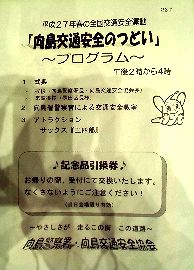 平成27年春の全国交通安全運動
「向島交通安全のつどい」
～プログラム～
午後2時から4時
1 式典
2 向島警察署による交通安全教室
3 アトラクション
サックス『三四郎』
♪記念品引換券♪
お帰りの際、受付にて交換いたします。
なくさないようにご注意ください！
～やさしさが 走るこの街 この道路～
向島警察署・向島交通安全協会